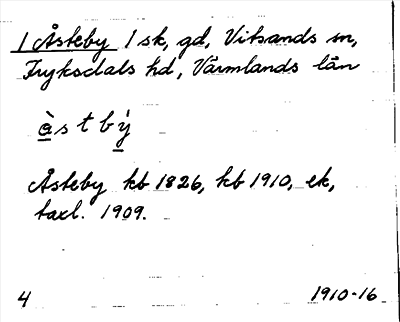 1 Åsteby 1 sk, gd, Vitsands sn,
Fryksdals hd, Värmlands län
ὰstbý
Åsteby kb 1826, kb 1910, ek,
taxl. 1909.
4 1910-16